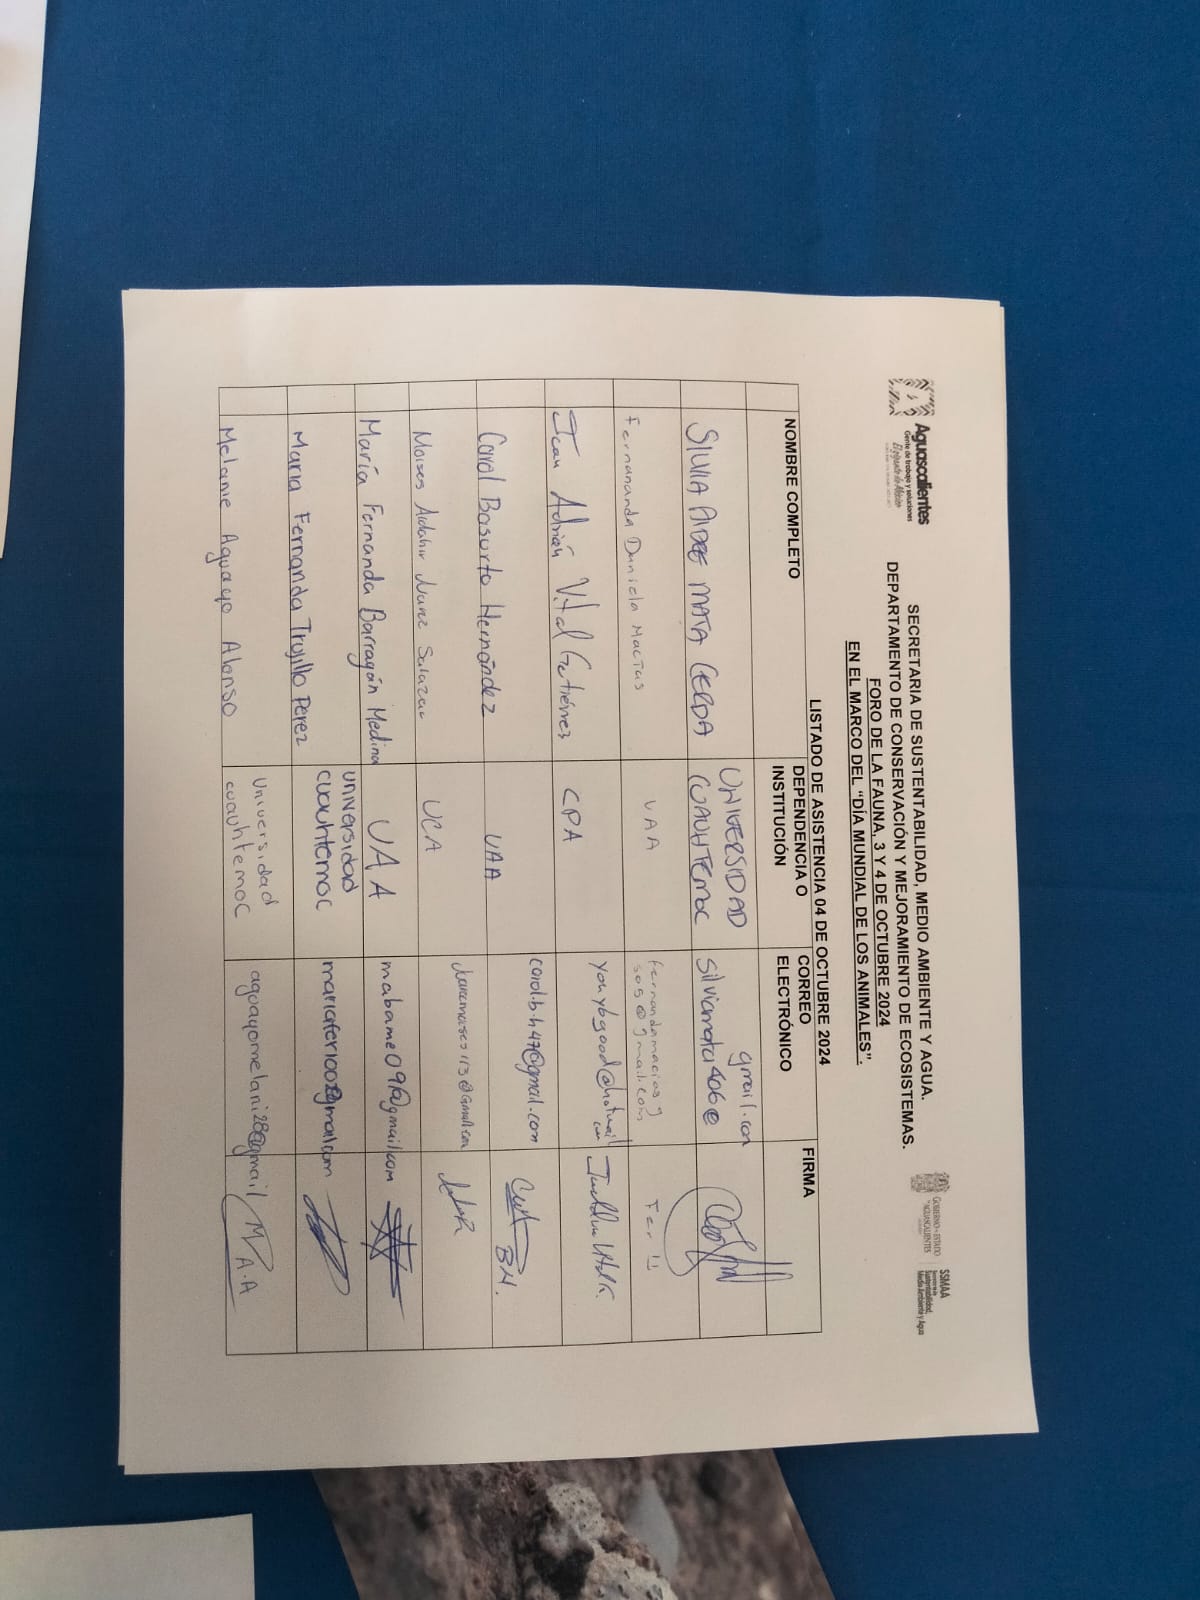 Aguascalientes
Gente de trabajo y soluciones
El gigante de México
SECRETARIA DE SUSTENTABILIDAD, MEDIO AMBIENTE Y AGUA.
DEPARTAMENTO DE CONSERVACIÓN Y MEJORAMIENTO DE ECOSISTEMAS.
FORO DE LA FAUNA, 3 Y 4 DE OCTUBRE 2024
EN EL MARCO DEL "DÍA MUNDIAL DE LOS ANIMALES".
GOBIERNO DEL ESTADO
AGUASCALIENTES
SSMAA
Sustentabilidad,
Medio Ambiente y Agua
LISTADO DE ASISTENCIA 04 DE OCTUBRE 2024
NOMBRE COMPLETO
DEPENDENCIA O
INSTITUCIÓN
CORREO
ELECTRÓNICO
FIRMA
SILVIA AIDEE MATA CERDA
UNIVERSIDAD
CUAUHTEMOC
silviamata406@
gmail.com
Fernananda Daniela Macias
UAA
fernandamacias9
505@gmail.com
Fer
Juan Adrián Vital Gutiérrez
CPA
yonybgood@hotmail
com
Carol Basurto Hernández
UAA
carol.b.h47@gmail.com
B.H.
Moises Adahir Juarez Salazar
UCA
María Fernanda Barragán Medina
UAA
mabame09@gmail.com
Maria Fernanda Trujillo Perez
Universidad
cuauhtemoc
Melanie Aguayo Alonso
Universidad
cuauhtemoc
aguayomelani28@gmail
M A.A